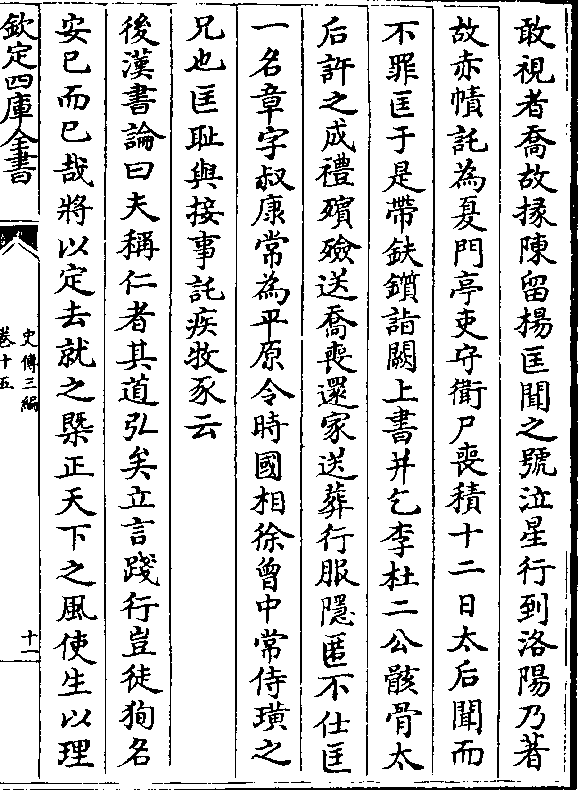 敢視者喬故掾陳留楊匡聞之號泣星行到洛陽乃著
故赤幘託為夏門亭吏守衛尸喪積十二日太后聞而
不罪匡于是帶鈇鑕詣闕上書并乞李杜二公骸骨太
后許之成禮殯殮送喬喪還家送葬行服隱匿不仕匡
一名章字叔康常為平原令時國相徐曾中常侍璜之
兄也匡恥與接事託疾牧豕云
後漢書論曰夫稱仁者其道弘矣立言踐行豈徒狥名
安已而已哉將以定去就之槩正天下之風使生以理
欽定四庫全書
史傳三編
卷十五
十一